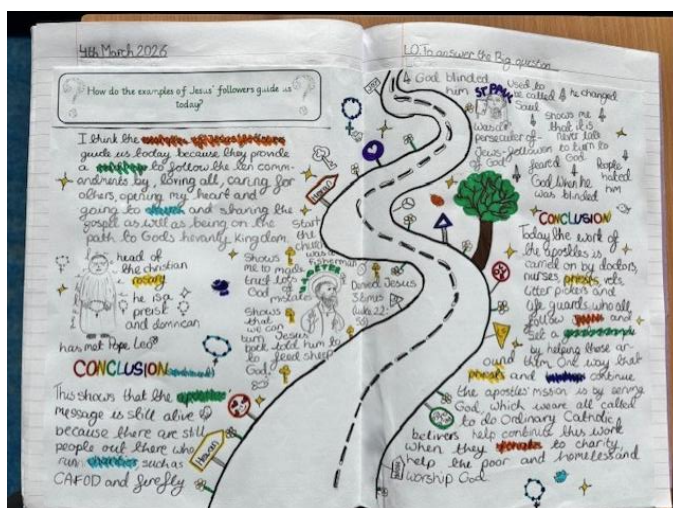 4th March 2026
How do the examples of Jesus' followers guide us
today?
I think the
guide us today because they provide
a to follow the ten comm-
andments by, loving all, caring for
others, opening my heart and
going to and sharing the
gospel as well as being on the
path to God's kingdom.
head of
the christian
rosary
he is a
preist
and domnican
has met Pope Leo
CONCLUSION
This shows that the
message is still alive
because there are still
people out there who
run such as
CAFOD and firefly
Start
the
church
was a
fisherman
ST PETER
Shows
me to
trust
God
mistakes
Shows
that
we can
turn
back
to
God
Jesus
told him to
feed sheep
Denied Jesus
3 times
Heaven
Heaven
LO. To answer the Big question
God blinded
him
ST PAUL
was a
persecutor of
Jews - followers
of God
used to
be called
Saul
he changed
shows me
that it is
never late
to turn to
God
feared
God when he
was blinded
People
hated
him
CONCLUSION
Today the work of
the apostles is
carried on by doctors,
nurses, priests, vets,
litter pickers and
life guards, who all
follow and
set a
by helping those ar-
ound them. One way that
priests and continue
the apostles mission is by serving
God, which we are all called
to do. Ordinary Catholic
belivers help continue this work
when they to charity,
help the poor and homeless and
worship God